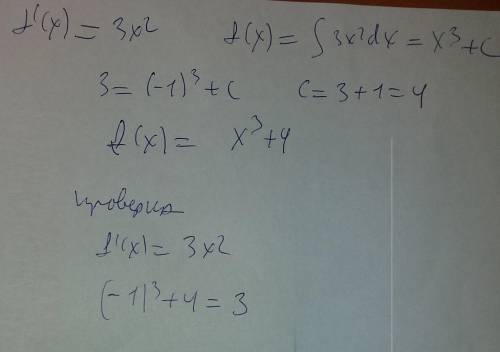 f'(x) = 3x² f(x) = ∫3x²dx = x³+C
3 = (-1)³+C C = 3+1 = 4
f(x) = x³+4
проверка
f'(x) = 3x²
(-1)³+4 = 3